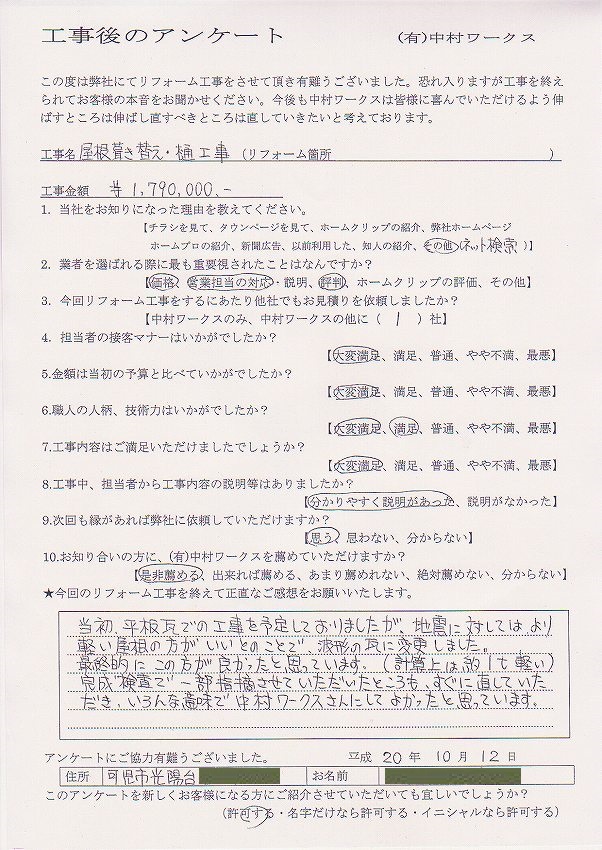 工事後のアンケート (有)中村ワークス
この度は弊社にてリフォーム工事をさせて頂き有難うございました。恐れ入りますが工事を終え
られてお客様の本音をお聞かせください。今後も中村ワークスは皆様に喜んでいただけるよう伸
ばすところは伸ばし直すべきところは直していきたいと考えております。
工事名 屋根葺き替え・樋工事 (リフォーム箇所 )
工事金額 ¥1,790,000.-
1. 当社をお知りになった理由を教えてください。
【チラシを見て、タウンページを見て、ホームクリップの紹介、弊社ホームページ
ホームプロの紹介、新聞広告、以前利用した、知人の紹介、その他(ネット検索)】
2. 業者を選ばれる際に最も重要視されたことはなんですか?
【価格、営業担当の対応・説明、評判、ホームクリップの評価、その他】
3. 今回リフォーム工事をするにあたり他社でもお見積りを依頼しましたか?
【中村ワークスのみ、中村ワークスの他に( 1 )社】
4. 担当者の接客マナーはいかがでしたか?
【大変満足、満足、普通、やや不満、最悪】
5.金額は当初の予算と比べていかがでしたか?
【大変満足、満足、普通、やや不満、最悪】
6.職人の人柄、技術力はいかがでしたか?
【大変満足、満足、普通、やや不満、最悪】
7.工事内容はご満足いただけましたでしょうか?
【大変満足、満足、普通、やや不満、最悪】
8.工事中、担当者から工事内容の説明等はありましたか?
【分かりやすく説明があった、説明がなかった】
9.次回も縁があれば弊社に依頼していただけますか?
【思う、思わない、分からない】
10.お知り合いの方に、(有)中村ワークスを薦めていただけますか?
【是非薦める、出来れば薦める、あまり薦めれない、絶対薦めない、分からない】
★今回のリフォーム工事を終えて正直なご感想をお願いいたします。
当初、平板瓦での工事を予定しておりましたが、地震に対しては、より
軽い屋根の方がいいとのことで、波形の瓦に変更しました。
最終的にこの方が良かったと思っています。(計算上は約1t軽い)
完成検査で一部指摘させていただいたところも、すぐに直していた
だき、いろんな意味で中村ワークスさんにしてよかったと思っています。
アンケートにご協力有難うございました。 平成 20年 10月 12日
住所 可児市光陽台 お名前
このアンケートを新しくお客様になる方にご紹介させていただいても宜しいでしょうか?
(許可する・名字だけなら許可する・イニシャルなら許可する)